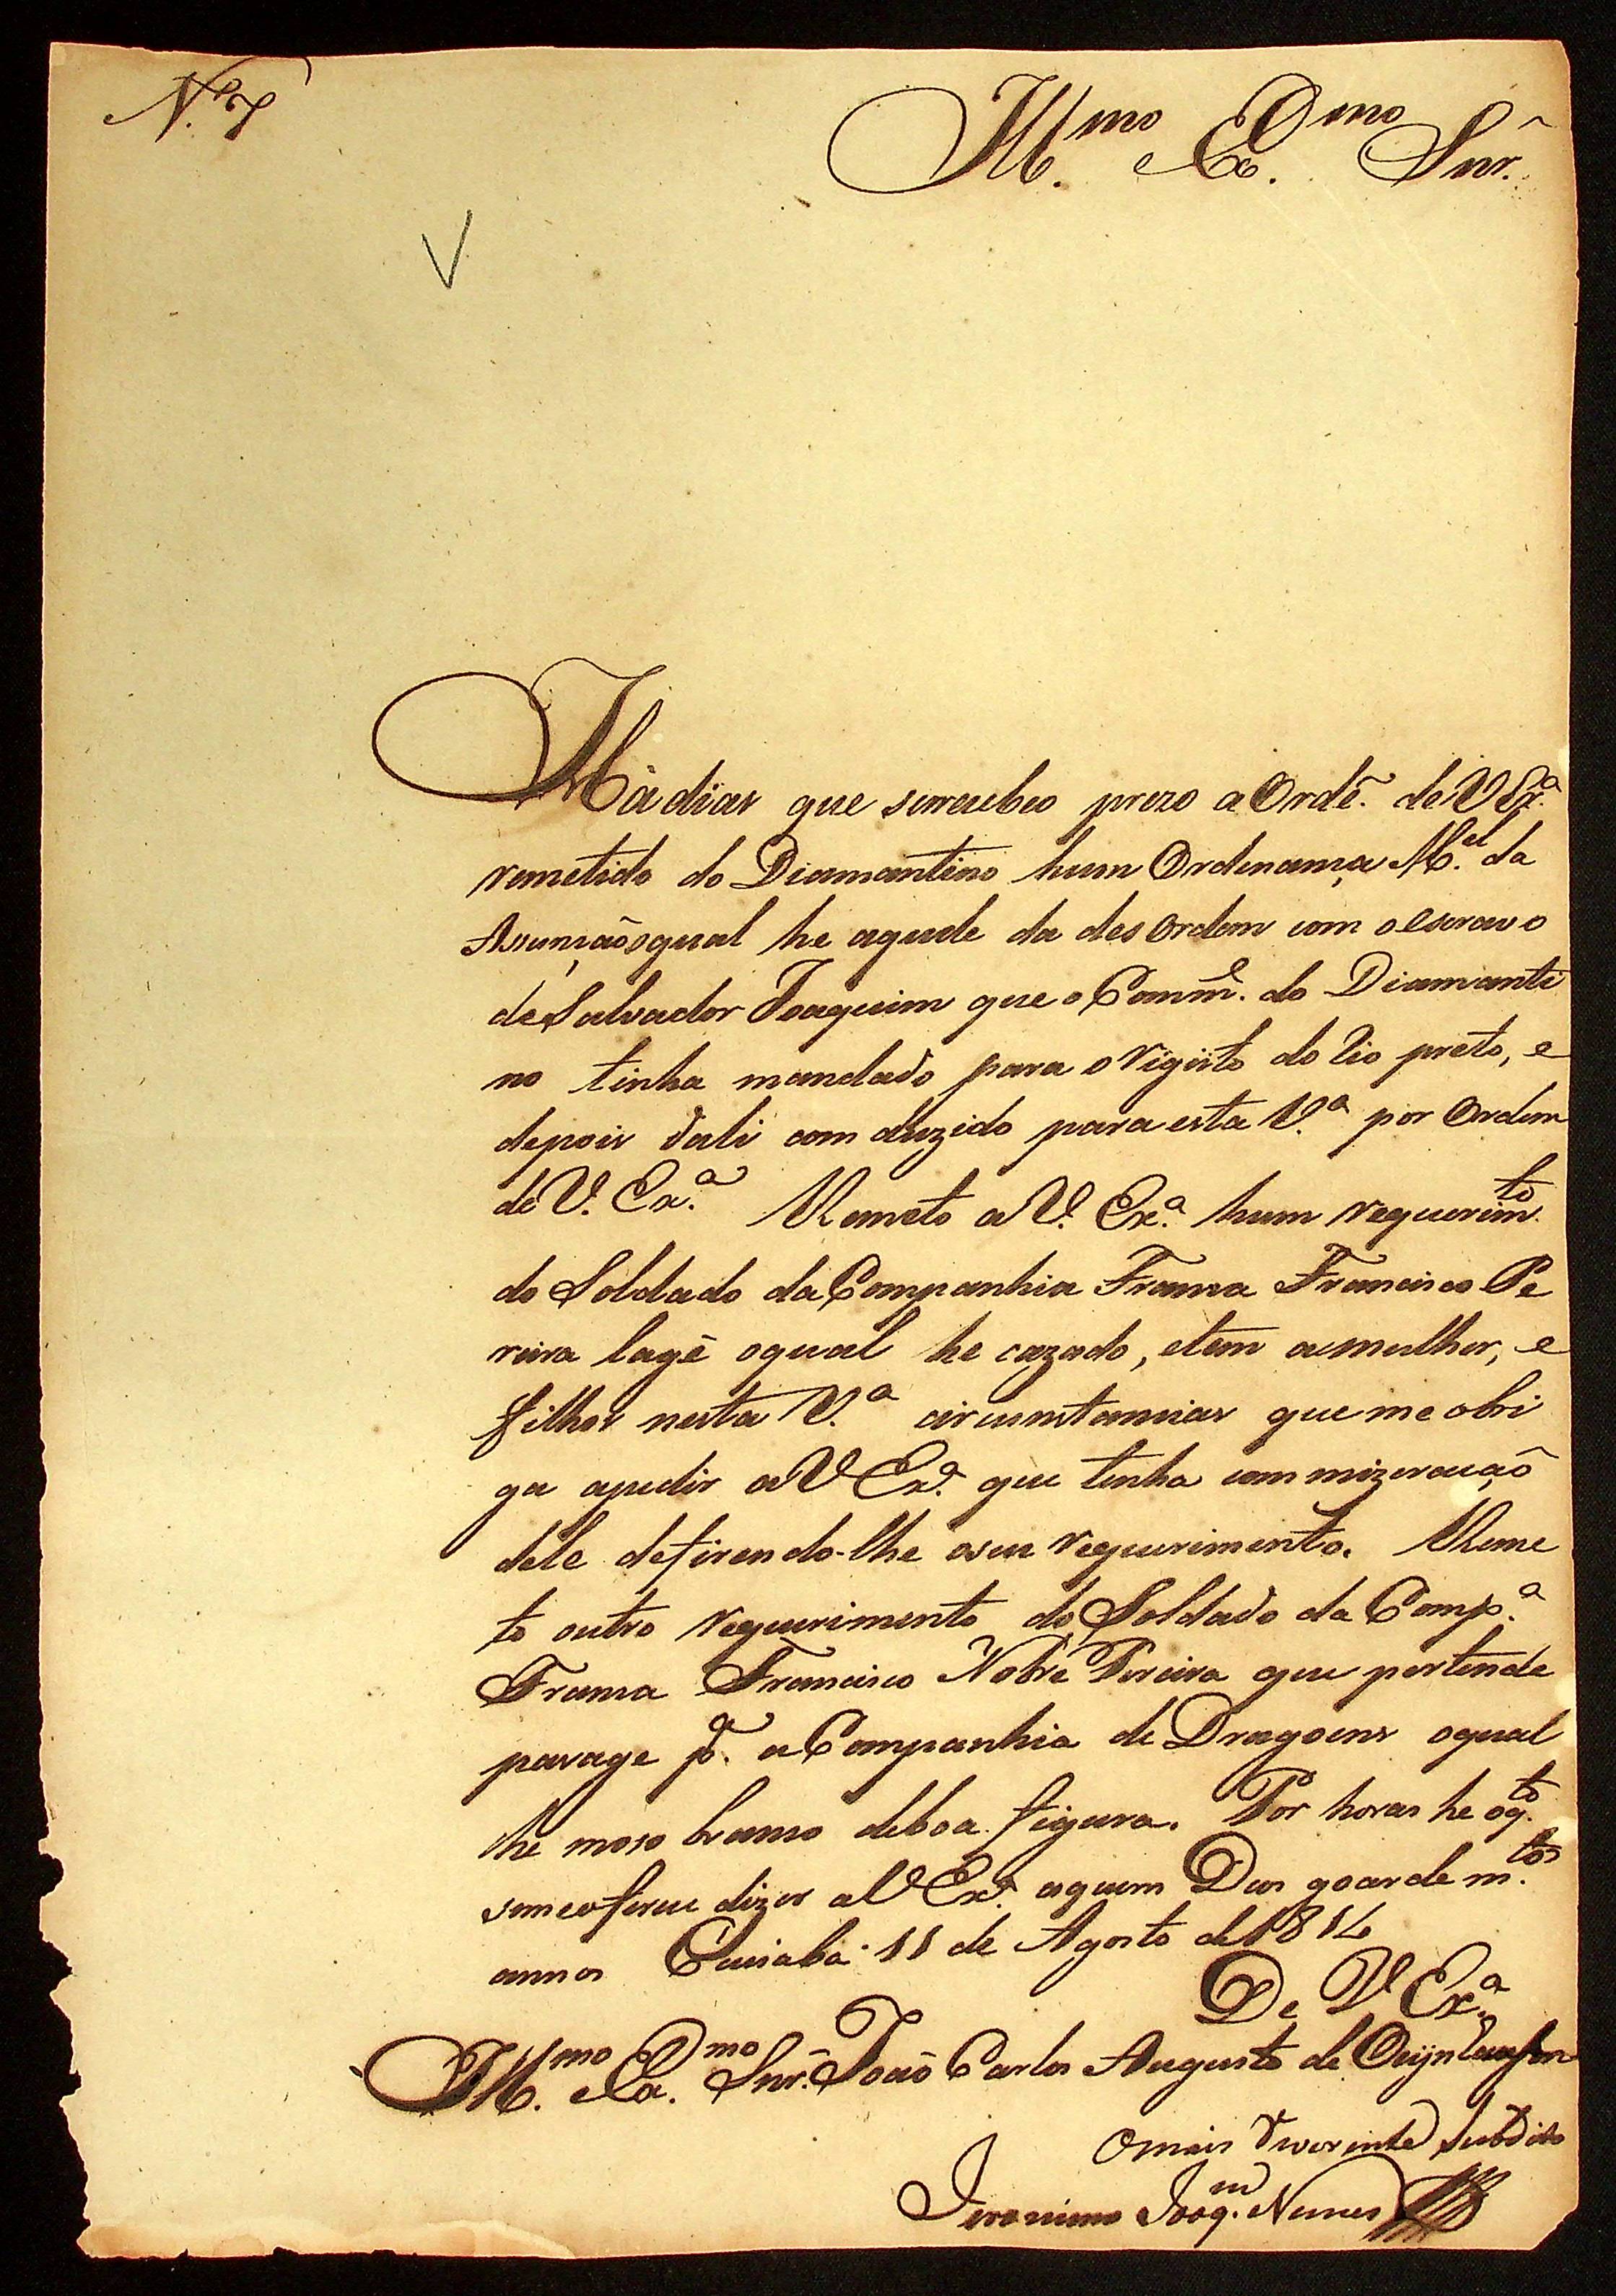 N.º 7
Ill.mo e Ex.mo Snr.
V
Hà dias que serecebeo prezo a Ordẽ. de V Ex.ª
remetido do Diamantino hum Ordenança M.el da
Assunção oqual he aquele da desOrdem com o escravo
de Salvador Joaquim que o Comm.e do Diamanti
no tinha mandado para o Rigisto do Rio preto, e
depois dali comduzido para esta V.ª por Ordem
de V. Ex.ª Remeto a V. Ex.ª hum requerim.to
do Soldado da Companhia Franca Francisco Pe
reira lage oqual he cazado, etem a mulher, e
filhos nesta V.ª circunstancias que me obri
ga apedir a V Ex.ª que tenha commizeração
dele defirendo-lhe oseu requerimento. Reme
to outro requerimento do Soldado da Comp.ª
Franca Francisco Nobre Pereira que pertende
pasage p.ª a Companhia de Dragoens oqual
he moso branco deboa figura. Por horas he oq.to
semeoferece dizer a V Ex.ª aquem Deos goarde m.tos
annos Cuiabá 11 de Agosto de 1814
De V Ex.ª
Ill.mo e Ex.mo Snr. João Carlos Augusto de Oeijnhausen
Omais Reverente Subdito
Jeronimo Joaq.m Nunes